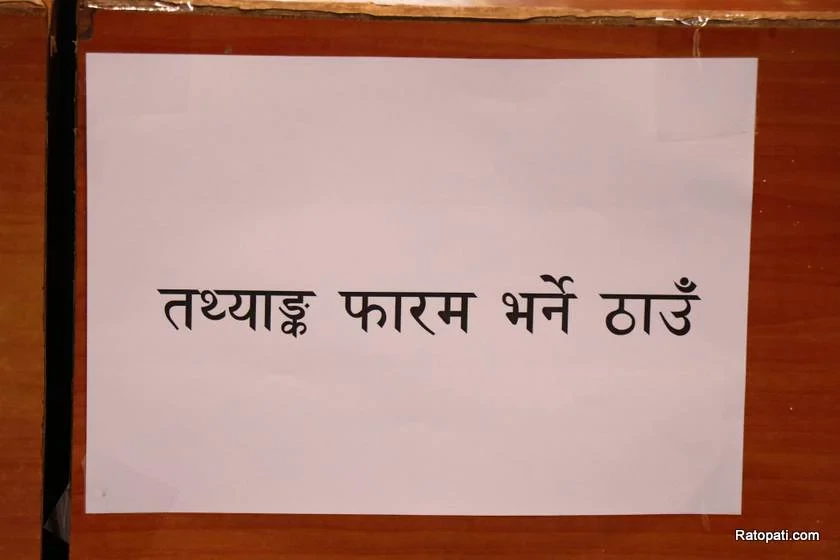 तथ्याङ्क फारम भर्ने ठाउँ
Ratopati.com